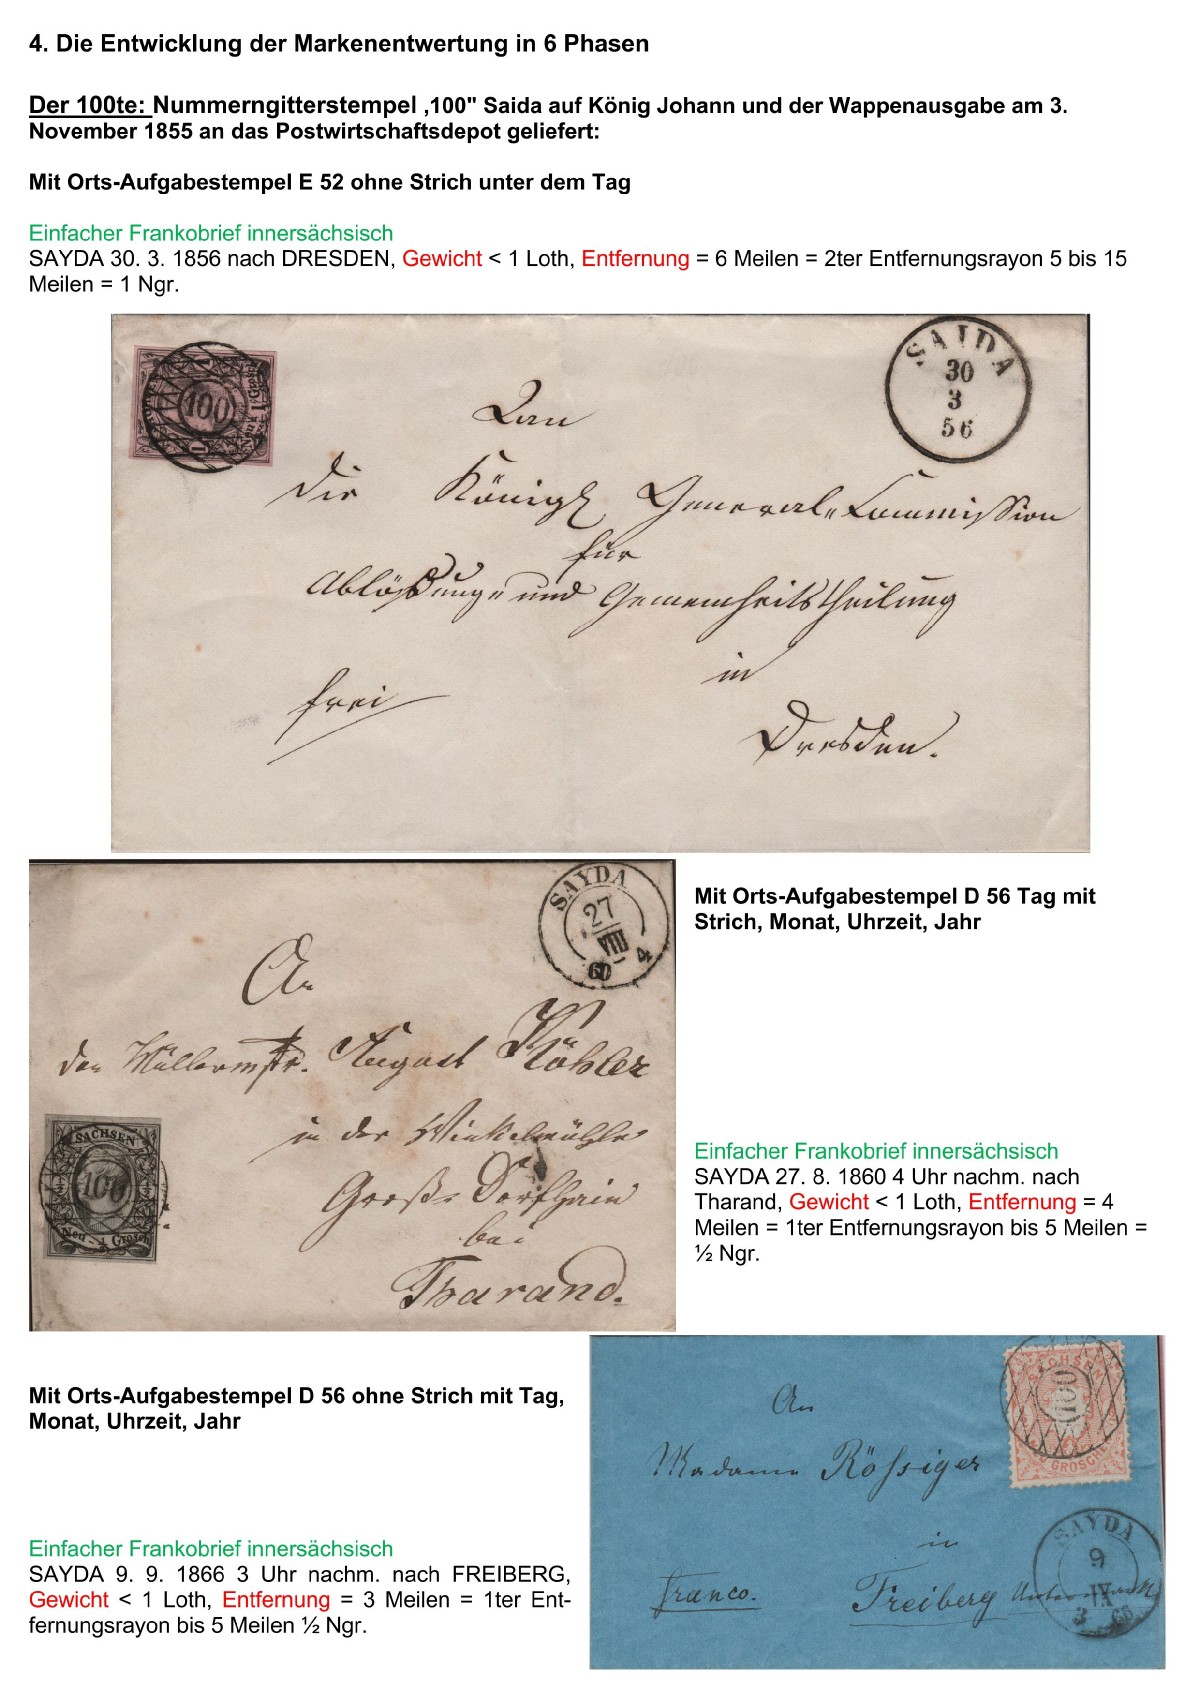 4. Die Entwicklung der Markenentwertung in 6 Phasen
Der 100te: Nummerngitterstempel ‚100" Saida auf König Johann und der Wappenausgabe am 3.
November 1855 an das Postwirtschaftsdepot geliefert:
Mit Orts-Aufgabestempel E 52 ohne Strich unter dem Tag
Einfacher Frankobrief innersächsisch
SAYDA 30. 3. 1856 nach DRESDEN, Gewicht < 1 Loth, Entfernung = 6 Meilen = 2ter Entfernungsrayon 5 bis 15
Meilen = 1 Ngr.
100
SAIDA
30
3
56
An
die Königl General-Commission
für
Ablösung- und Gemeinheitstheilung
in
frei
Dresden.
SAYDA
27
VIII
60 4
An
den Müllermstr. August Köhler
in der Winkelmühle
Groß-Dorfhain
bei
Tharand.
SACHSEN
100
Neu-½ Grosch
Mit Orts-Aufgabestempel D 56 Tag mit
Strich, Monat, Uhrzeit, Jahr
Einfacher Frankobrief innersächsisch
SAYDA 27. 8. 1860 4 Uhr nachm. nach
Tharand, Gewicht < 1 Loth, Entfernung = 4
Meilen = 1ter Entfernungsrayon bis 5 Meilen =
½ Ngr.
Mit Orts-Aufgabestempel D 56 ohne Strich mit Tag,
Monat, Uhrzeit, Jahr
Einfacher Frankobrief innersächsisch
SAYDA 9. 9. 1866 3 Uhr nachm. nach FREIBERG,
Gewicht < 1 Loth, Entfernung = 3 Meilen = 1ter Ent-
fernungsrayon bis 5 Meilen ½ Ngr.
SACHSEN
100
GROSCHEN
An
Madame Rößiger
in
franco.
Freiberg
SAYDA
9
IX
3 66